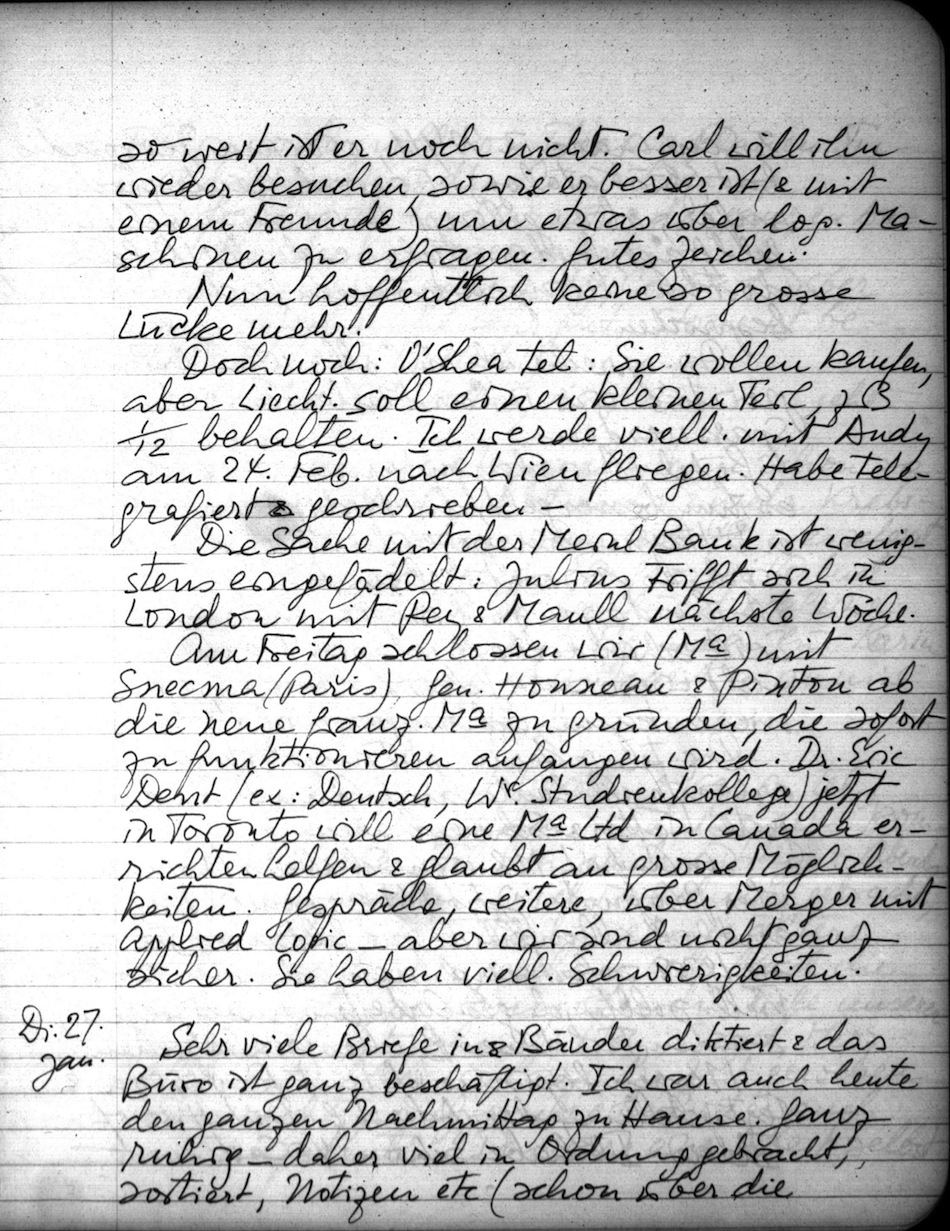 so weit ist er noch nicht. Carl will ihn
wieder besuchen, sowie er besser ist (& mit
einem Freunde) um etwas über log. Ma-
schinen zu erfragen. Gutes Zeichen.
Nun hoffentlich keine so grosse
Lücke mehr.
Doch noch: O'Shea tel: Sie wollen kaufen,
aber Liecht. soll einen kleinen Teil, zB
1/12 behalten. Ich werde viell. mit Andy
am 24. Feb. nach Wien fliegen. Habe tele-
grafiert & geschrieben –
Die Sache mit der Bank ist wenig-
stens eingefädelt: Julius trifft sich in
London mit & Maull nächste Woche.
Am Freitag schlossen wir (Ma) mit
Snecma (Paris) Gen. & Pinton ab
die neue franz. Ma zu gründen, die sofort
zu funktionieren anfangen wird. Dr. Eric
(ex: Deutsch, Wr. Studienkollege) jetzt
in Toronto will eine Ma Ltd in Canada er-
richten helfen & glaubt an grosse Möglich-
keiten. Gespräche, weitere, über Merger mit
Applied Logic – aber wir sind nicht ganz
sicher. Sie haben viell. Schwierigkeiten.
Di. 27. Jan.
Sehr viele Briefe in 2 Bänder diktiert & das
Büro ist ganz beschäftigt. Ich war auch heute
den ganzen Nachmittag zu Hause. Ganz
ruhig – daher viel in Ordnung gebracht,
sortiert, Notizen etc (schon über die